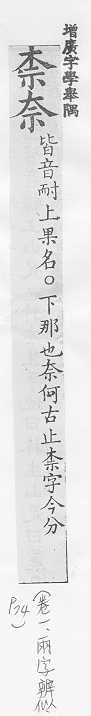 增廣字學舉隅
柰奈 皆音耐上果名。下那也奈何古止柰字今分
(卷一、兩字辨似
P24)